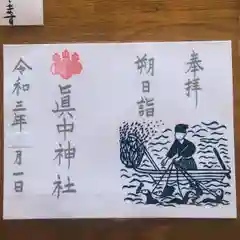 奉拝
朔日詣
眞中神社
令和三年
月一日